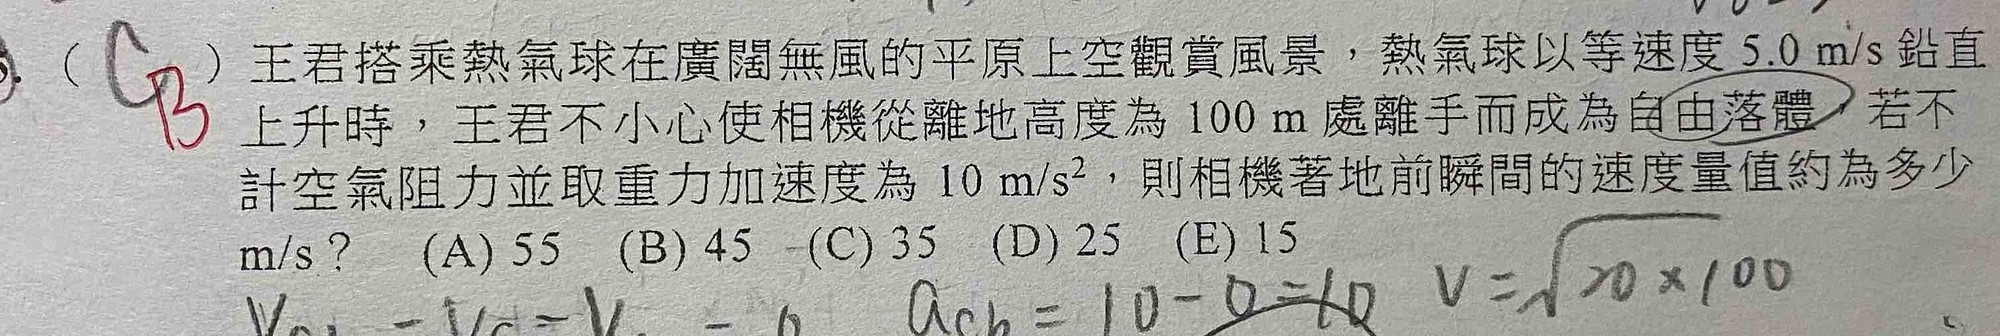 ( C B ) 王君搭乘熱氣球在廣闊無風的平原上空觀賞風景，熱氣球以等速度 5.0 m/s 鉛直
上升時，王君不小心使相機從離地高度為 100 m 處離手而成為自由落體，若不
計空氣阻力並取重力加速度為 10 m/s²，則相機著地前瞬間的速度量值約為多少
m/s？ (A) 55 (B) 45 (C) 35 (D) 25 (E) 15
acb = 10 - 0 = 10 V = √20 × 100